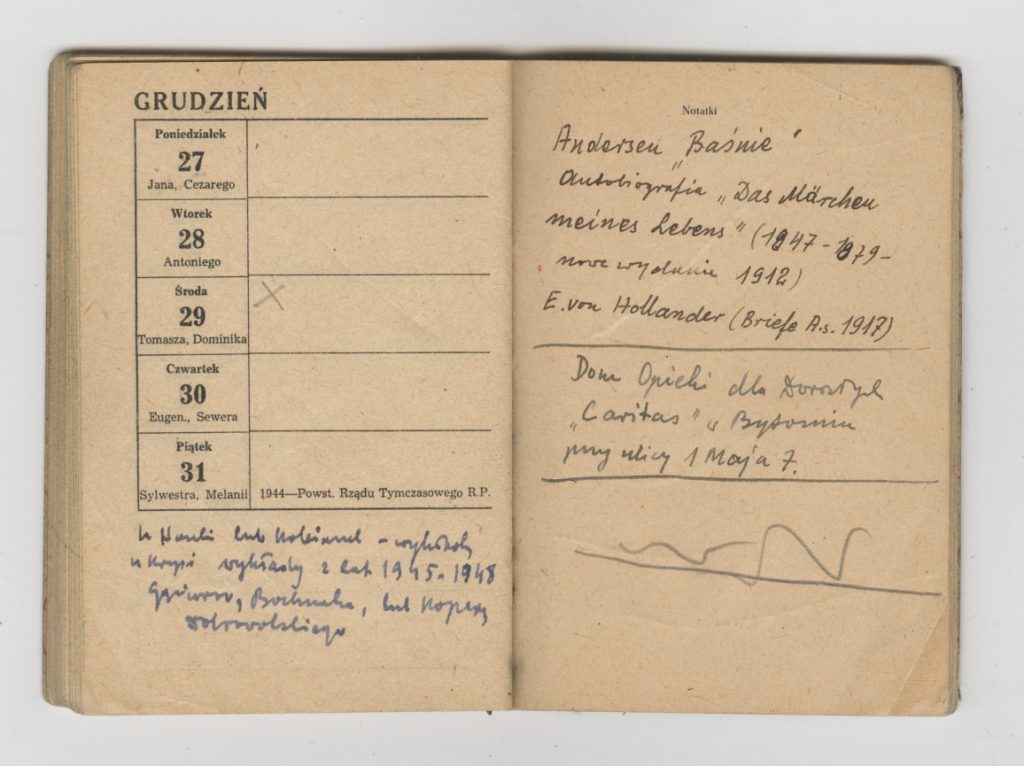 GRUDZIEŃ
Poniedziałek
27
Jana, Cezarego
Wtorek
28
Antoniego
Środa
29
Tomasza, Dominika
Czwartek
30
Eugen., Sewera
Piątek
31
Sylwestra, Melanii
1944—Powst. Rządu Tymczasowego R.P.
lub
wykłady z lat 1945-1948
lub
Dobrowolskiego
Notatki
Andersen „Baśnie"
Autobiografia „Das Märchen
meines Lebens" (1847-1879-
nowe wydanie 1912)
E. von Hollander (Briefe A.s. 1917)
Dom Opieki dla Dorosłych
„Caritas" w Bytomiu
przy ulicy 1 Maja 7.